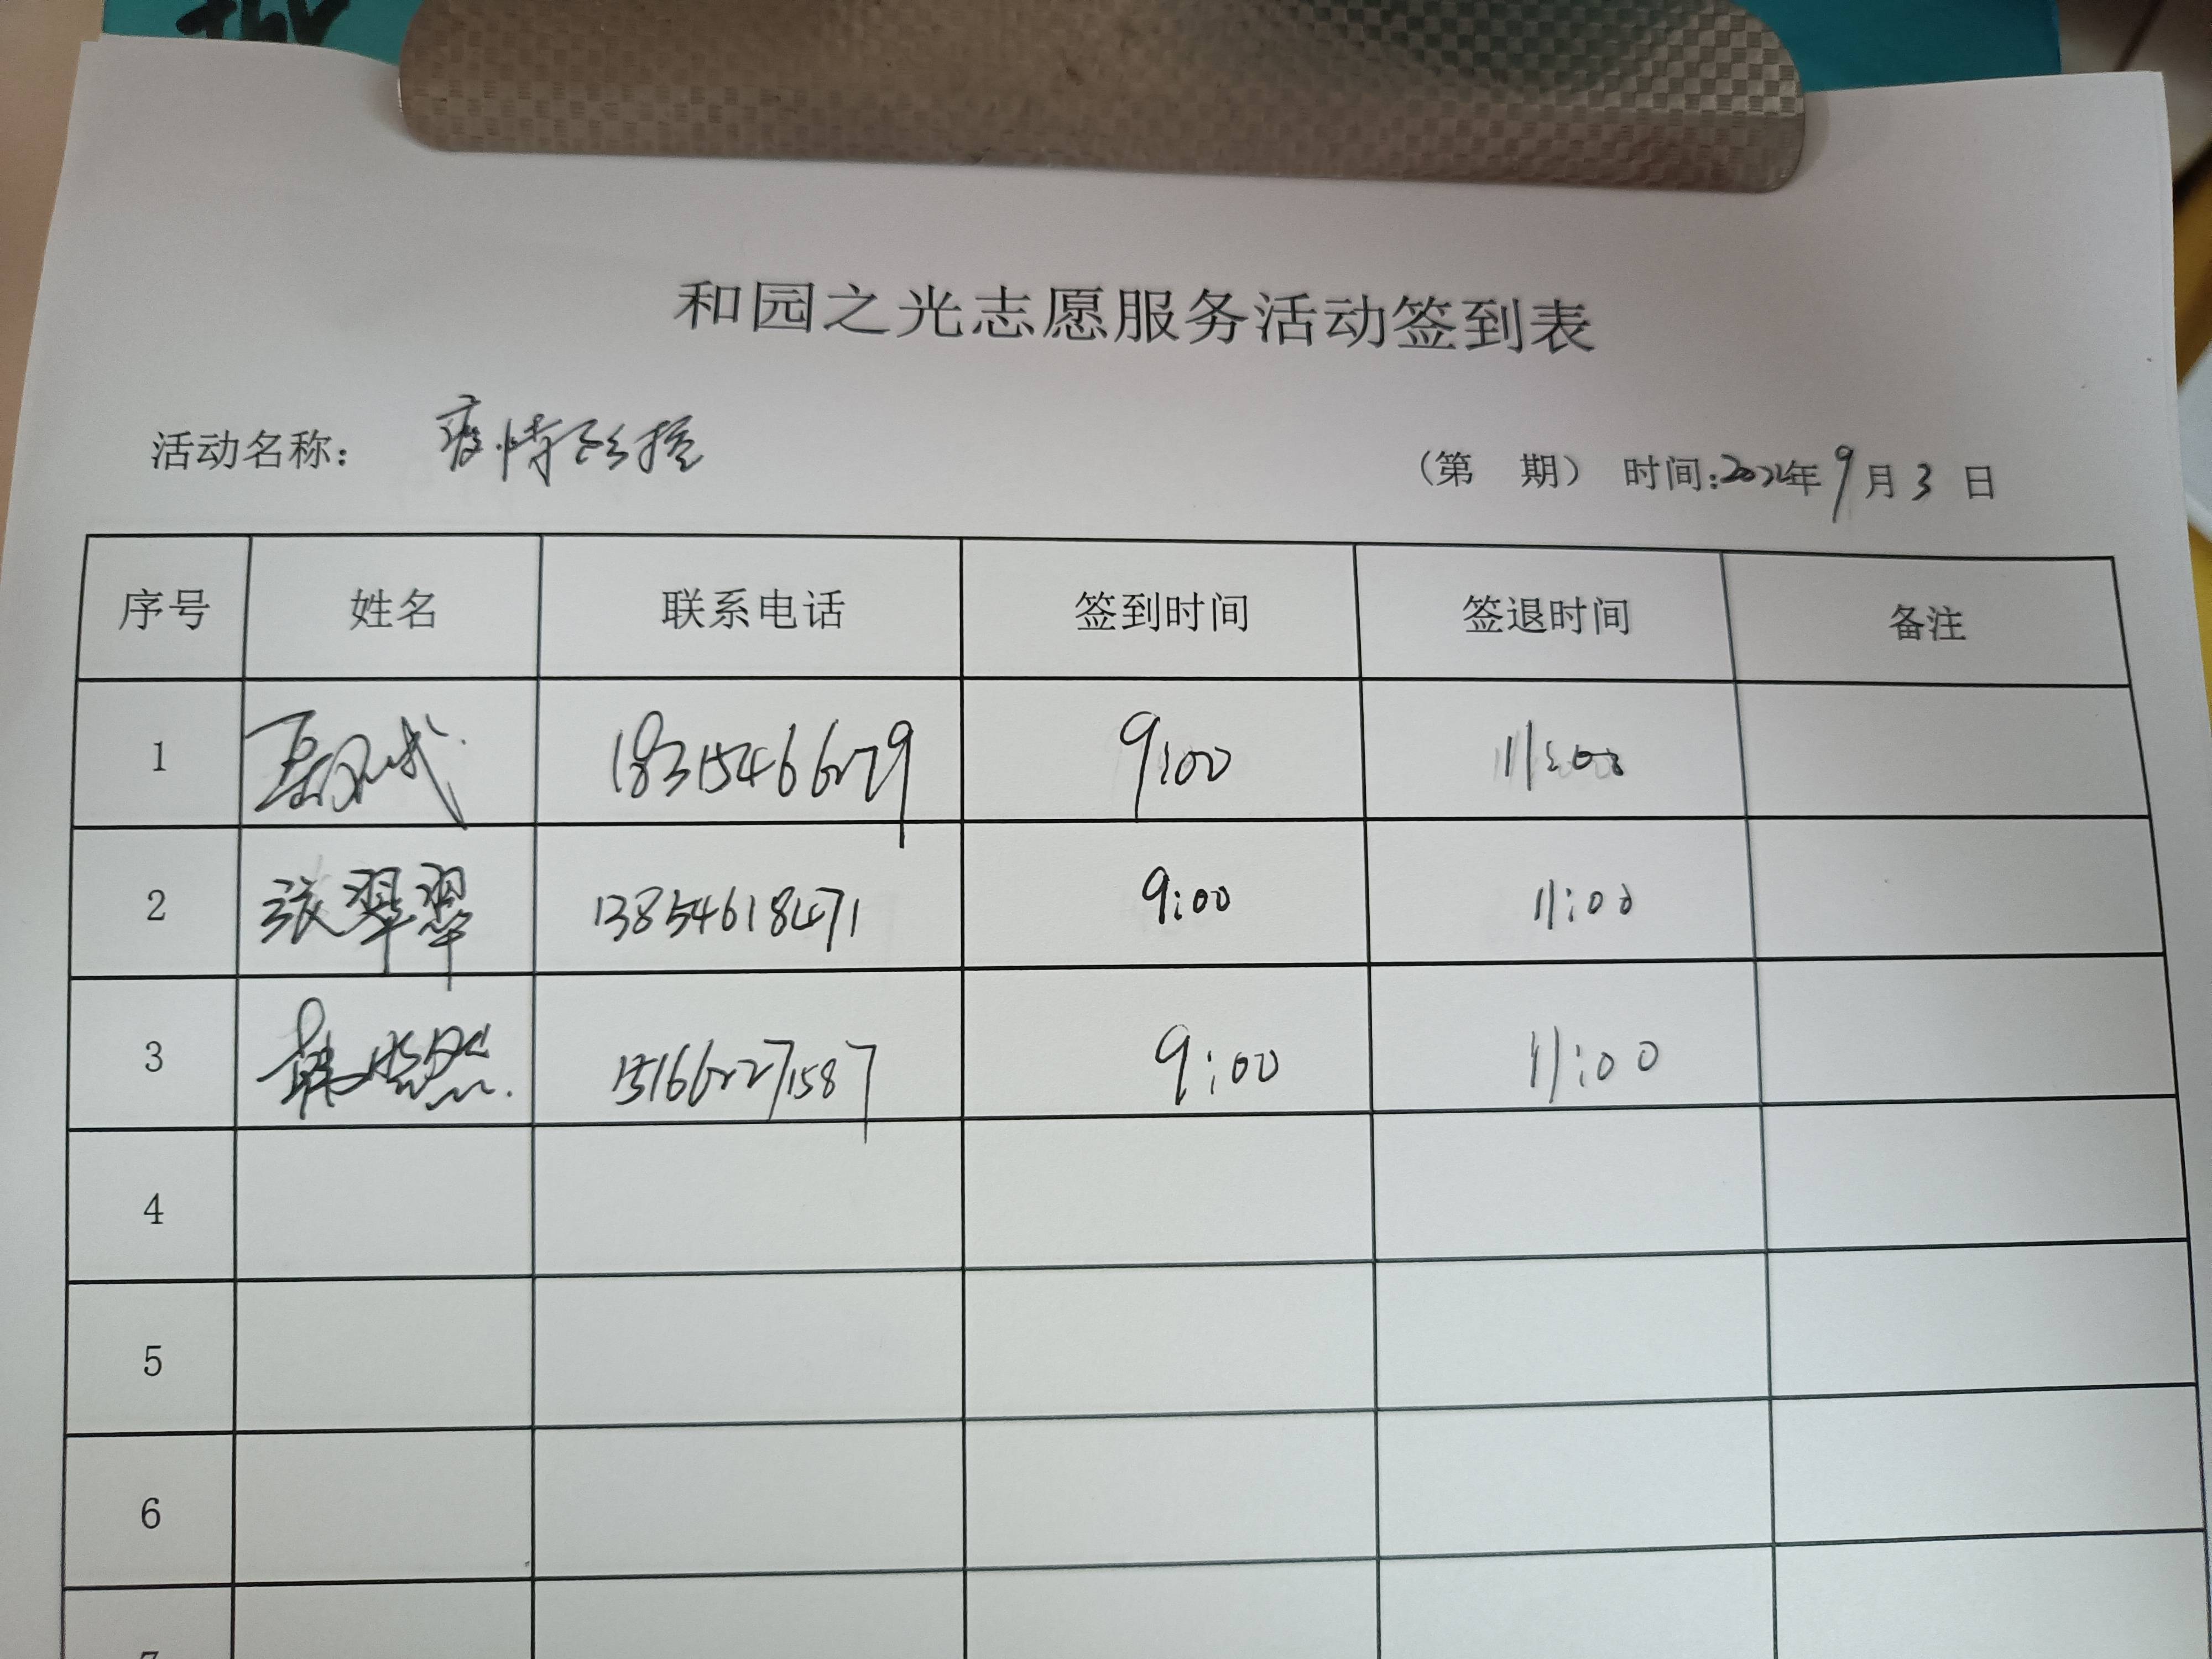 和园之光志愿服务活动签到表
活动名称： 疫情防控 （第 期） 时间:2022年9月3日
序号 姓名 联系电话 签到时间 签退时间 备注
1 18315466279 9:00 11:00
2 张翠翠 13854618471 9:00 11:00
3 韩 然 15166271587 9:00 11:00
4
5
6
7